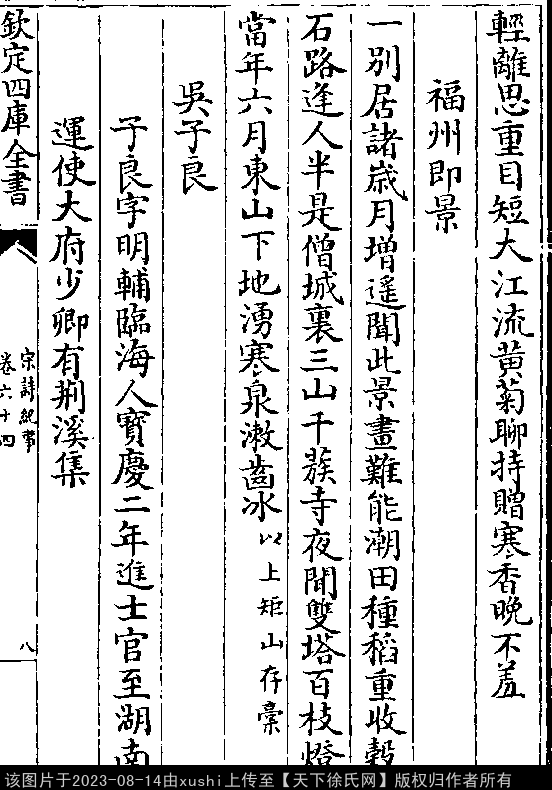 輕離思重目短大江流黄菊聊持贈寒香晚不羞
福州即景
一别居諸歲月增遥聞此景畫難能潮田種稻重收穀
石路逢人半是僧城裏三山千蔟寺夜間雙塔百枝燈
當年六月東山下地湧寒泉漱齒冰以上矩山存稾
吳子良
子良字明輔臨海人寶慶二年進士官至湖南
運使大府少卿有荆溪集
欽定四庫全書
宋詩紀事
卷六十四
八
该图片于2023-08-14由xushi上传至【天下徐氏网】版权归作者所有